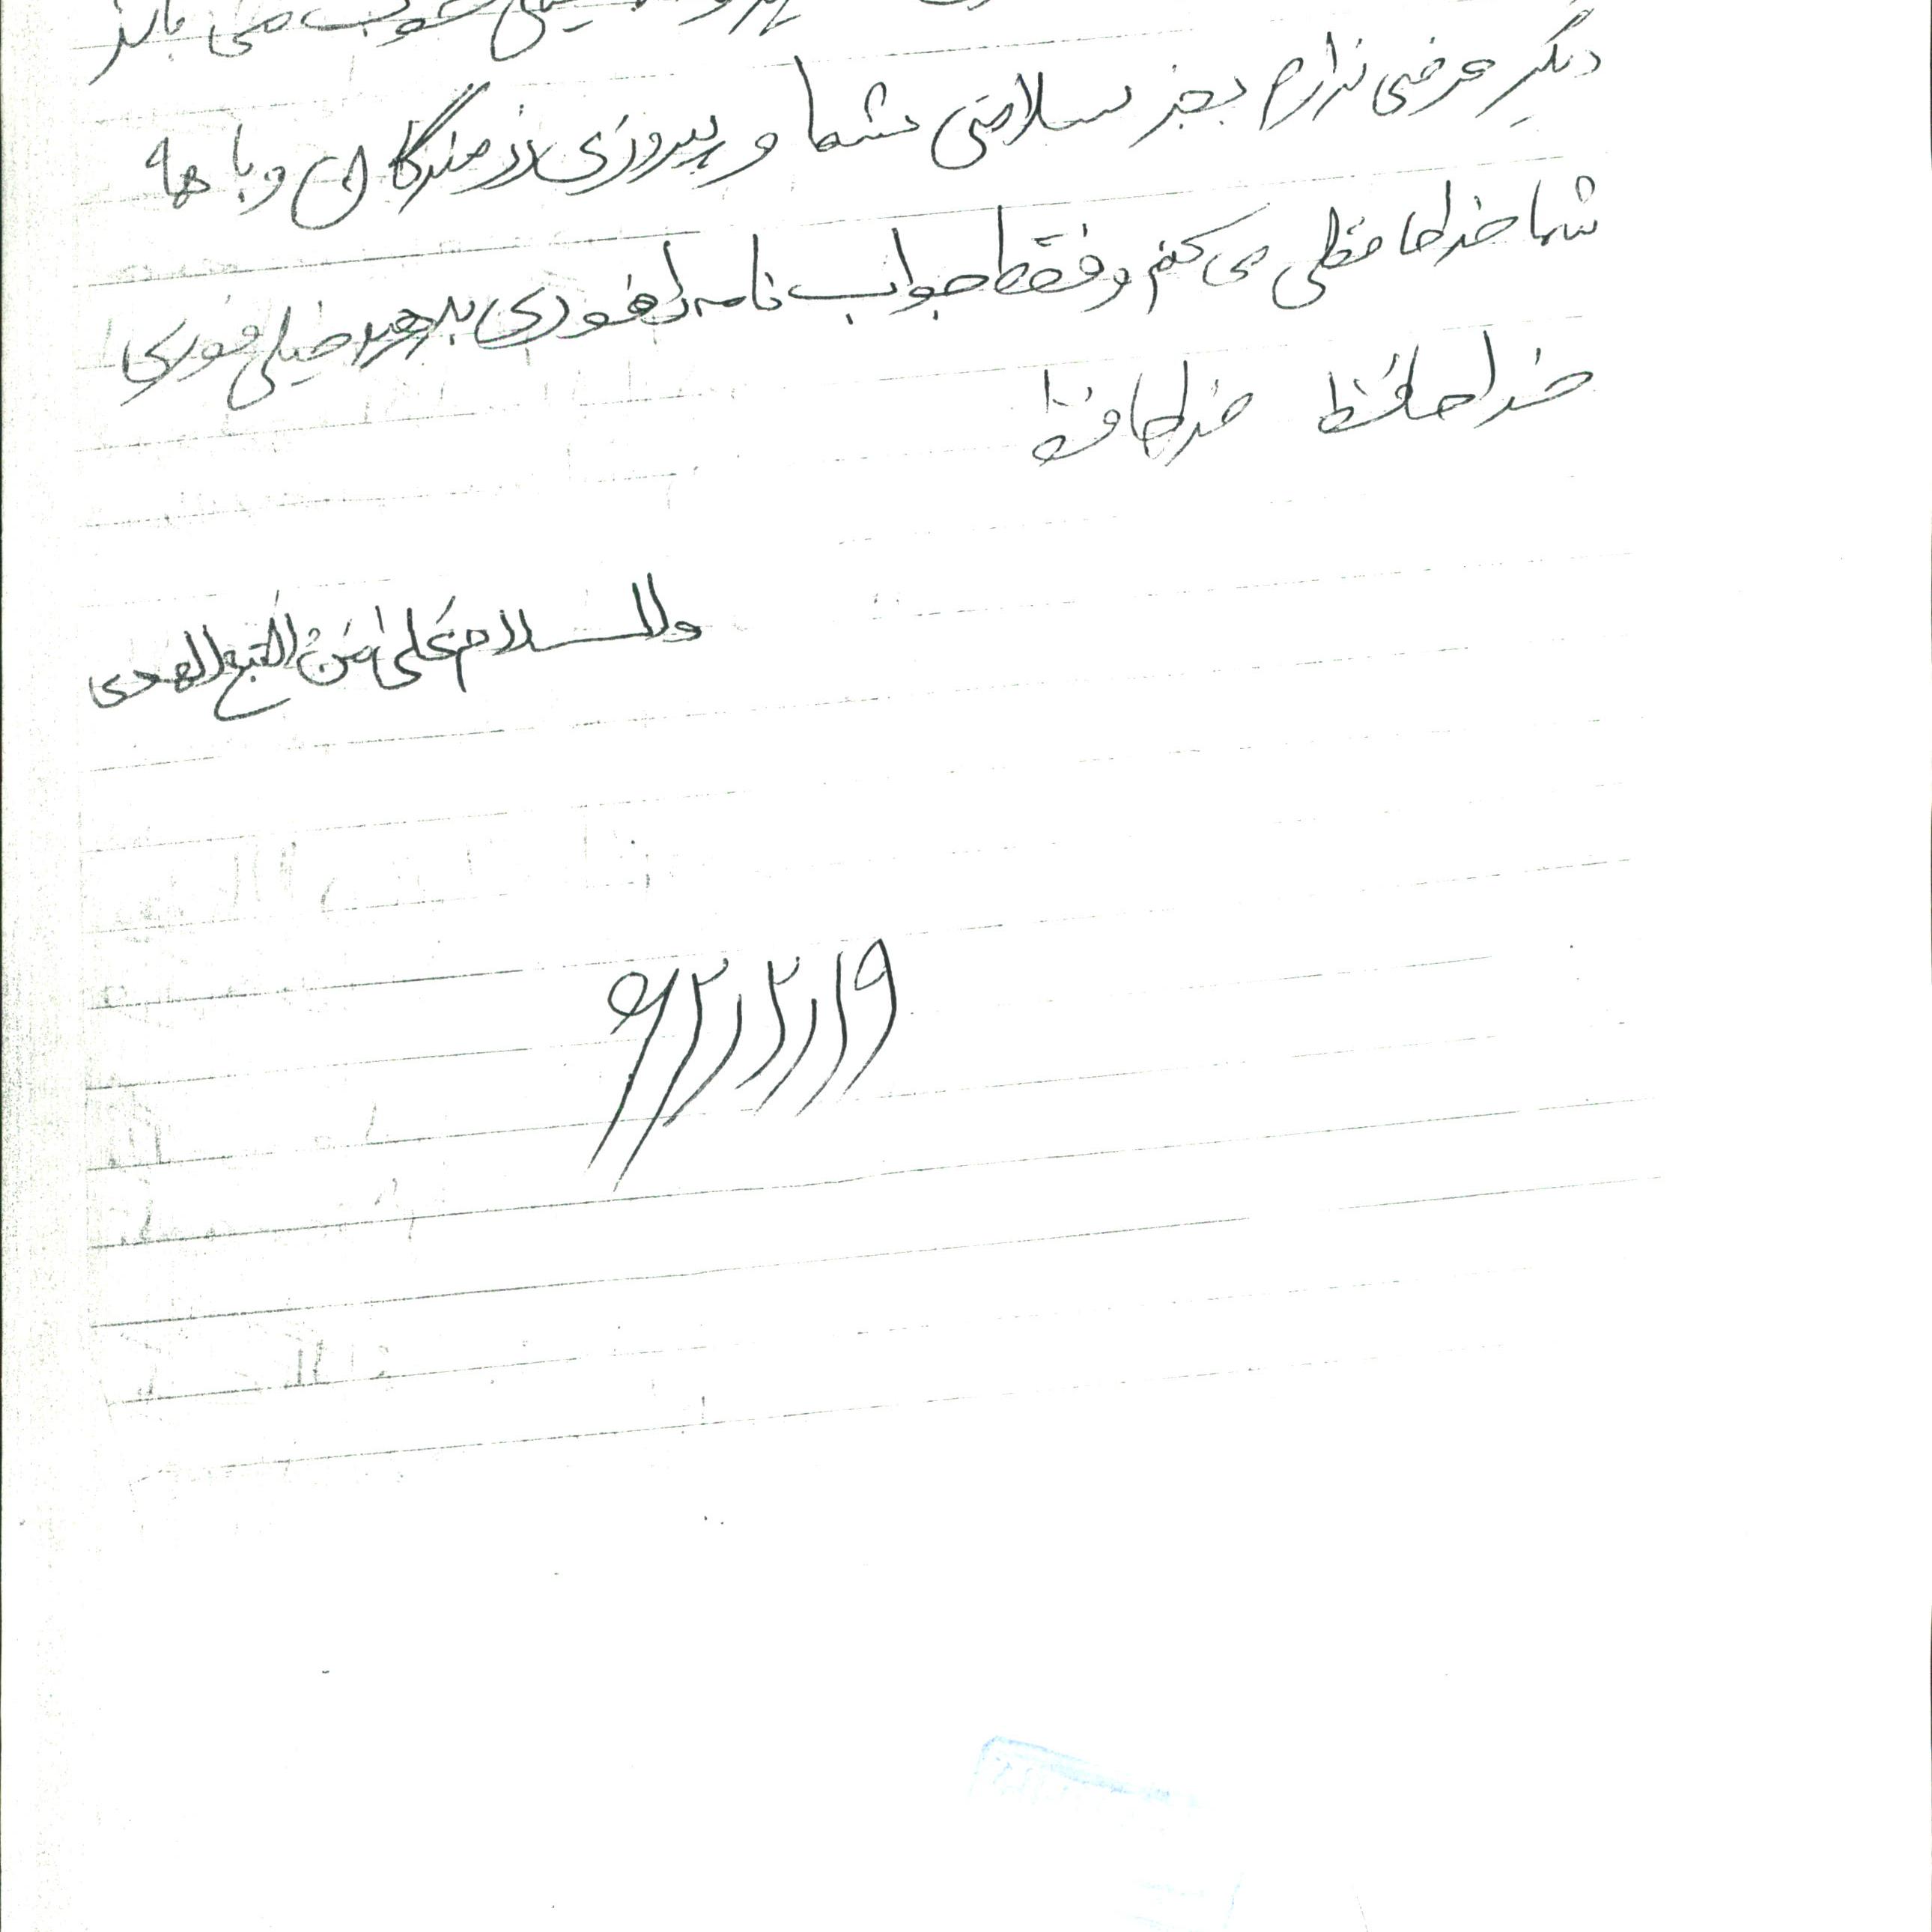 خیلی خوب می باشد
دیگر عرضی ندارم بجز سلامتی شما و پیروزی رزمندگان و با همه
شما خداحافظی می کنم و فقط جواب نامه را فوری بدهید خیلی فوری
خداحافظ خداحافظ
والسلام علی من التبع الهدی
۶۲٫۲٫۱۹